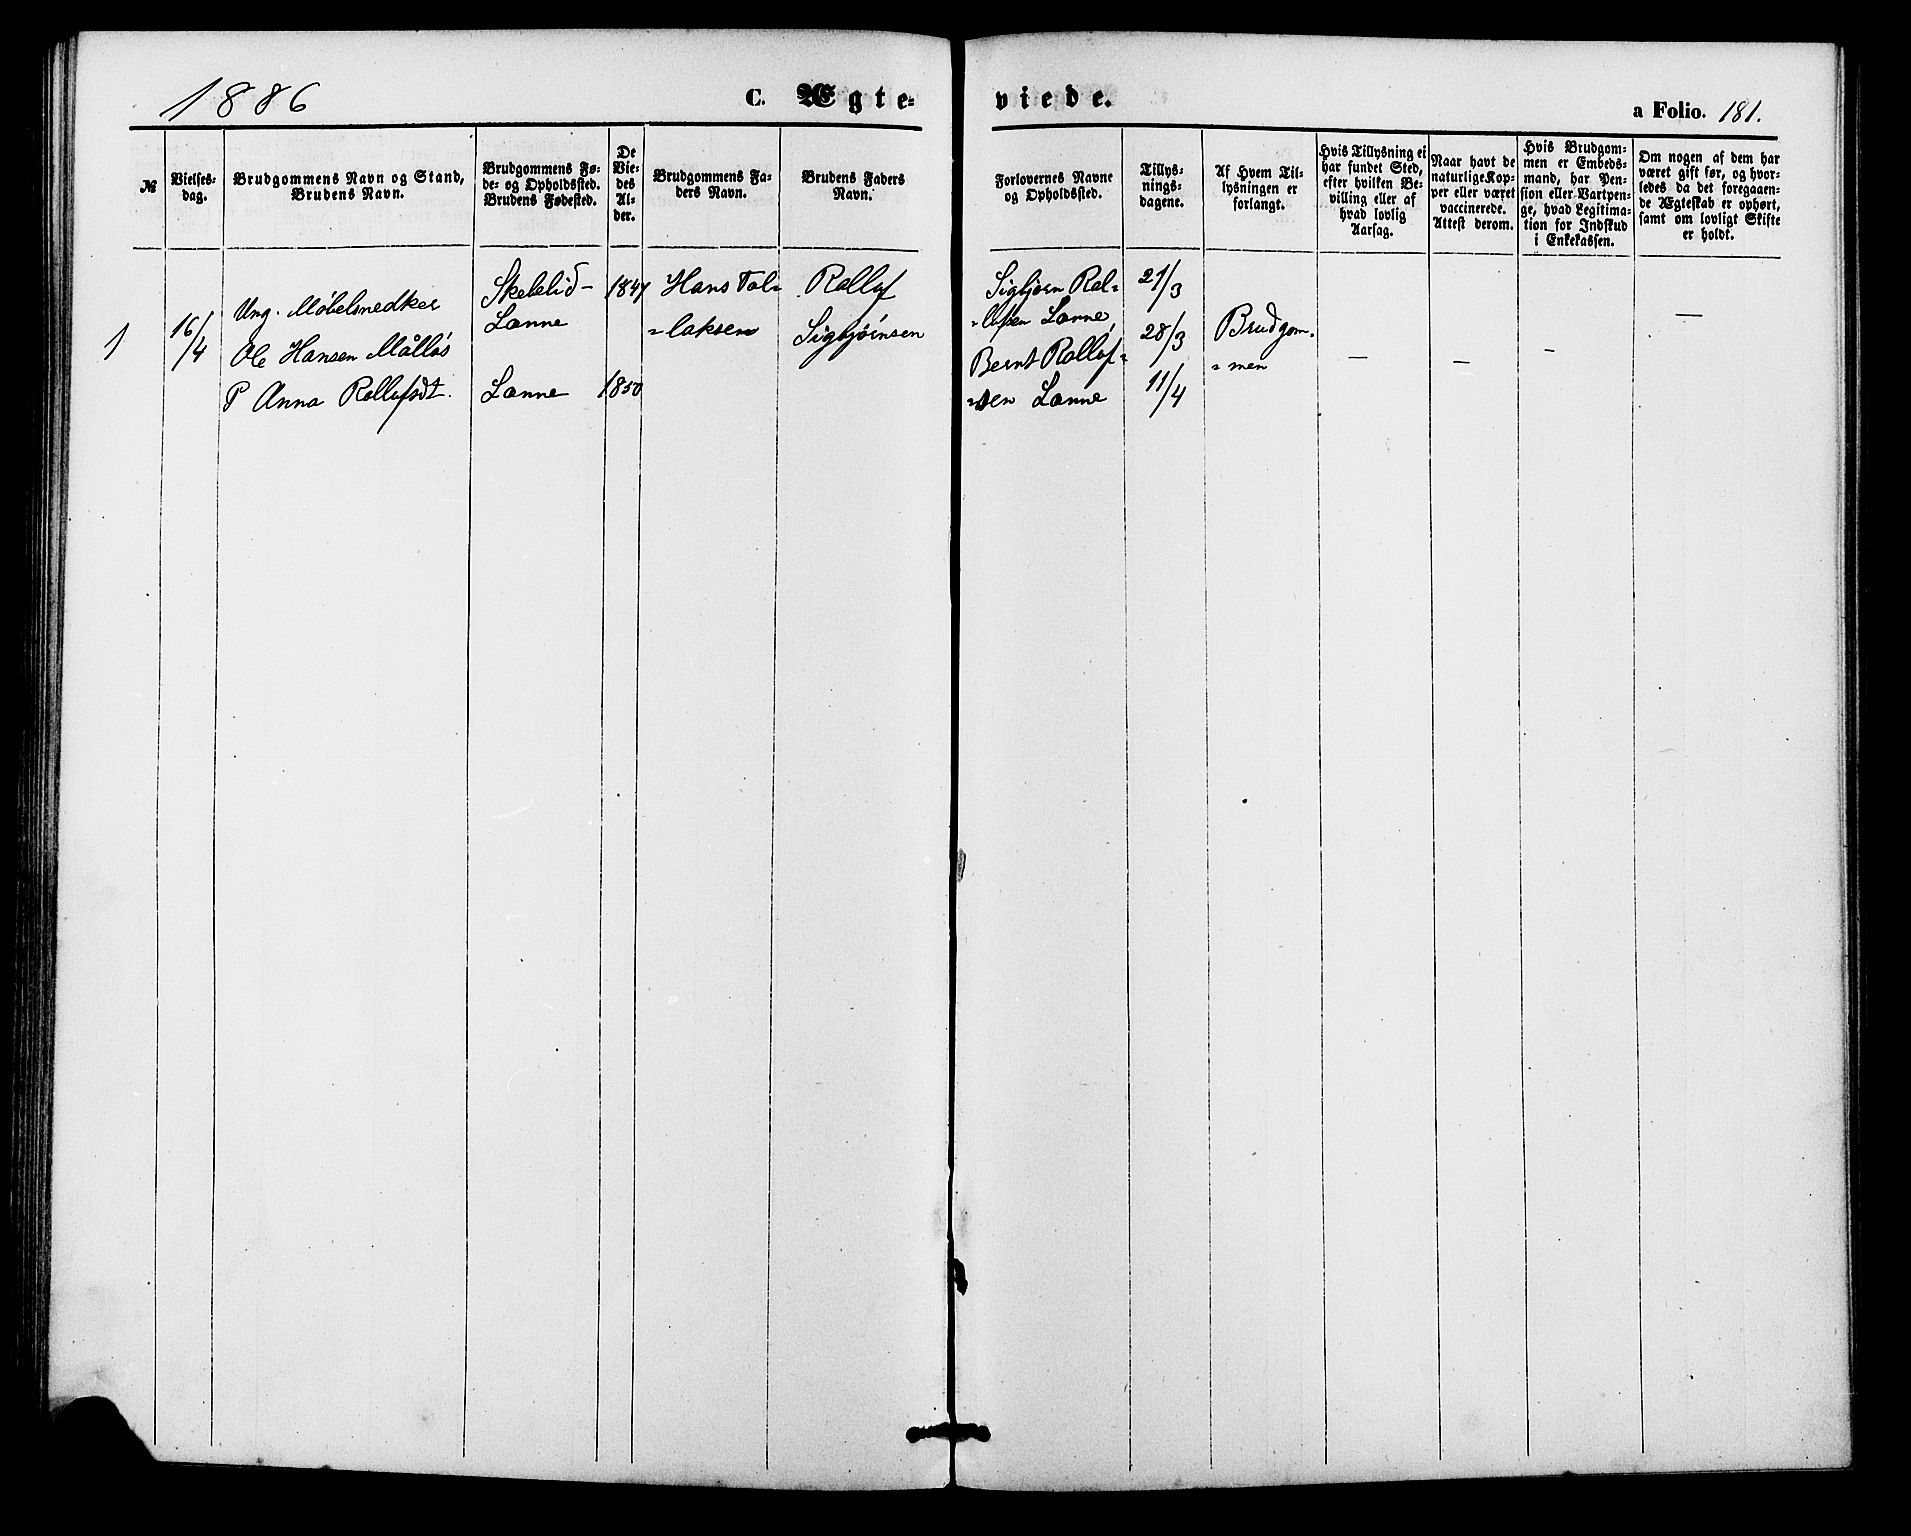 1886
C. Ægte=
viede.
a Folio. 181.
№
Vielses-
dag.
Brudgommens Navn og Stand,
Brudens Navn.
Brudgommens Fø-
de- og Opholdssted.
Brudens Fødested.
De
Vie-
des
Al-
der.
Brudgommens Fa-
ders Navn.
Brudens Faders
Navn.
Forlovernes Navne
og Opholdssted.
Tillys-
nings-
dagene.
Af Hvem Til-
lysningen er
forlangt.
Hvis Tillysning ei
har fundet Sted,
efter hvilken Be-
villing eller af
hvad lovlig
Aarsag.
Naar havt de
naturlige Kop-
per eller været
vaccinerede.
Attest derom.
Hvis Brudgom-
men er Embeds-
mand, har Pen-
sion eller Vartpen-
ge, hvad Legitima-
tion for Indskud
i Enkekassen.
Om nogen af dem har
været gift før, og hvor-
ledes da det foregaaen-
de Ægteskab er ophørt,
samt om lovligt Skifte
er holdt.
1
16/4
Ung. Møbelsnedker
Ole Hansen Målløs
P Anna Rollofsdt.
Lonne
Lonne
1847
1850
Hans Tol-
=laksen
Rollof
Sigbjørnsen
Sigbjørn Rol-
=lofsen Lonne
Bernt Rollof=
=sen Lonne
21/3
28/3
11/4
Brudgom=
=men
—
—
—
—